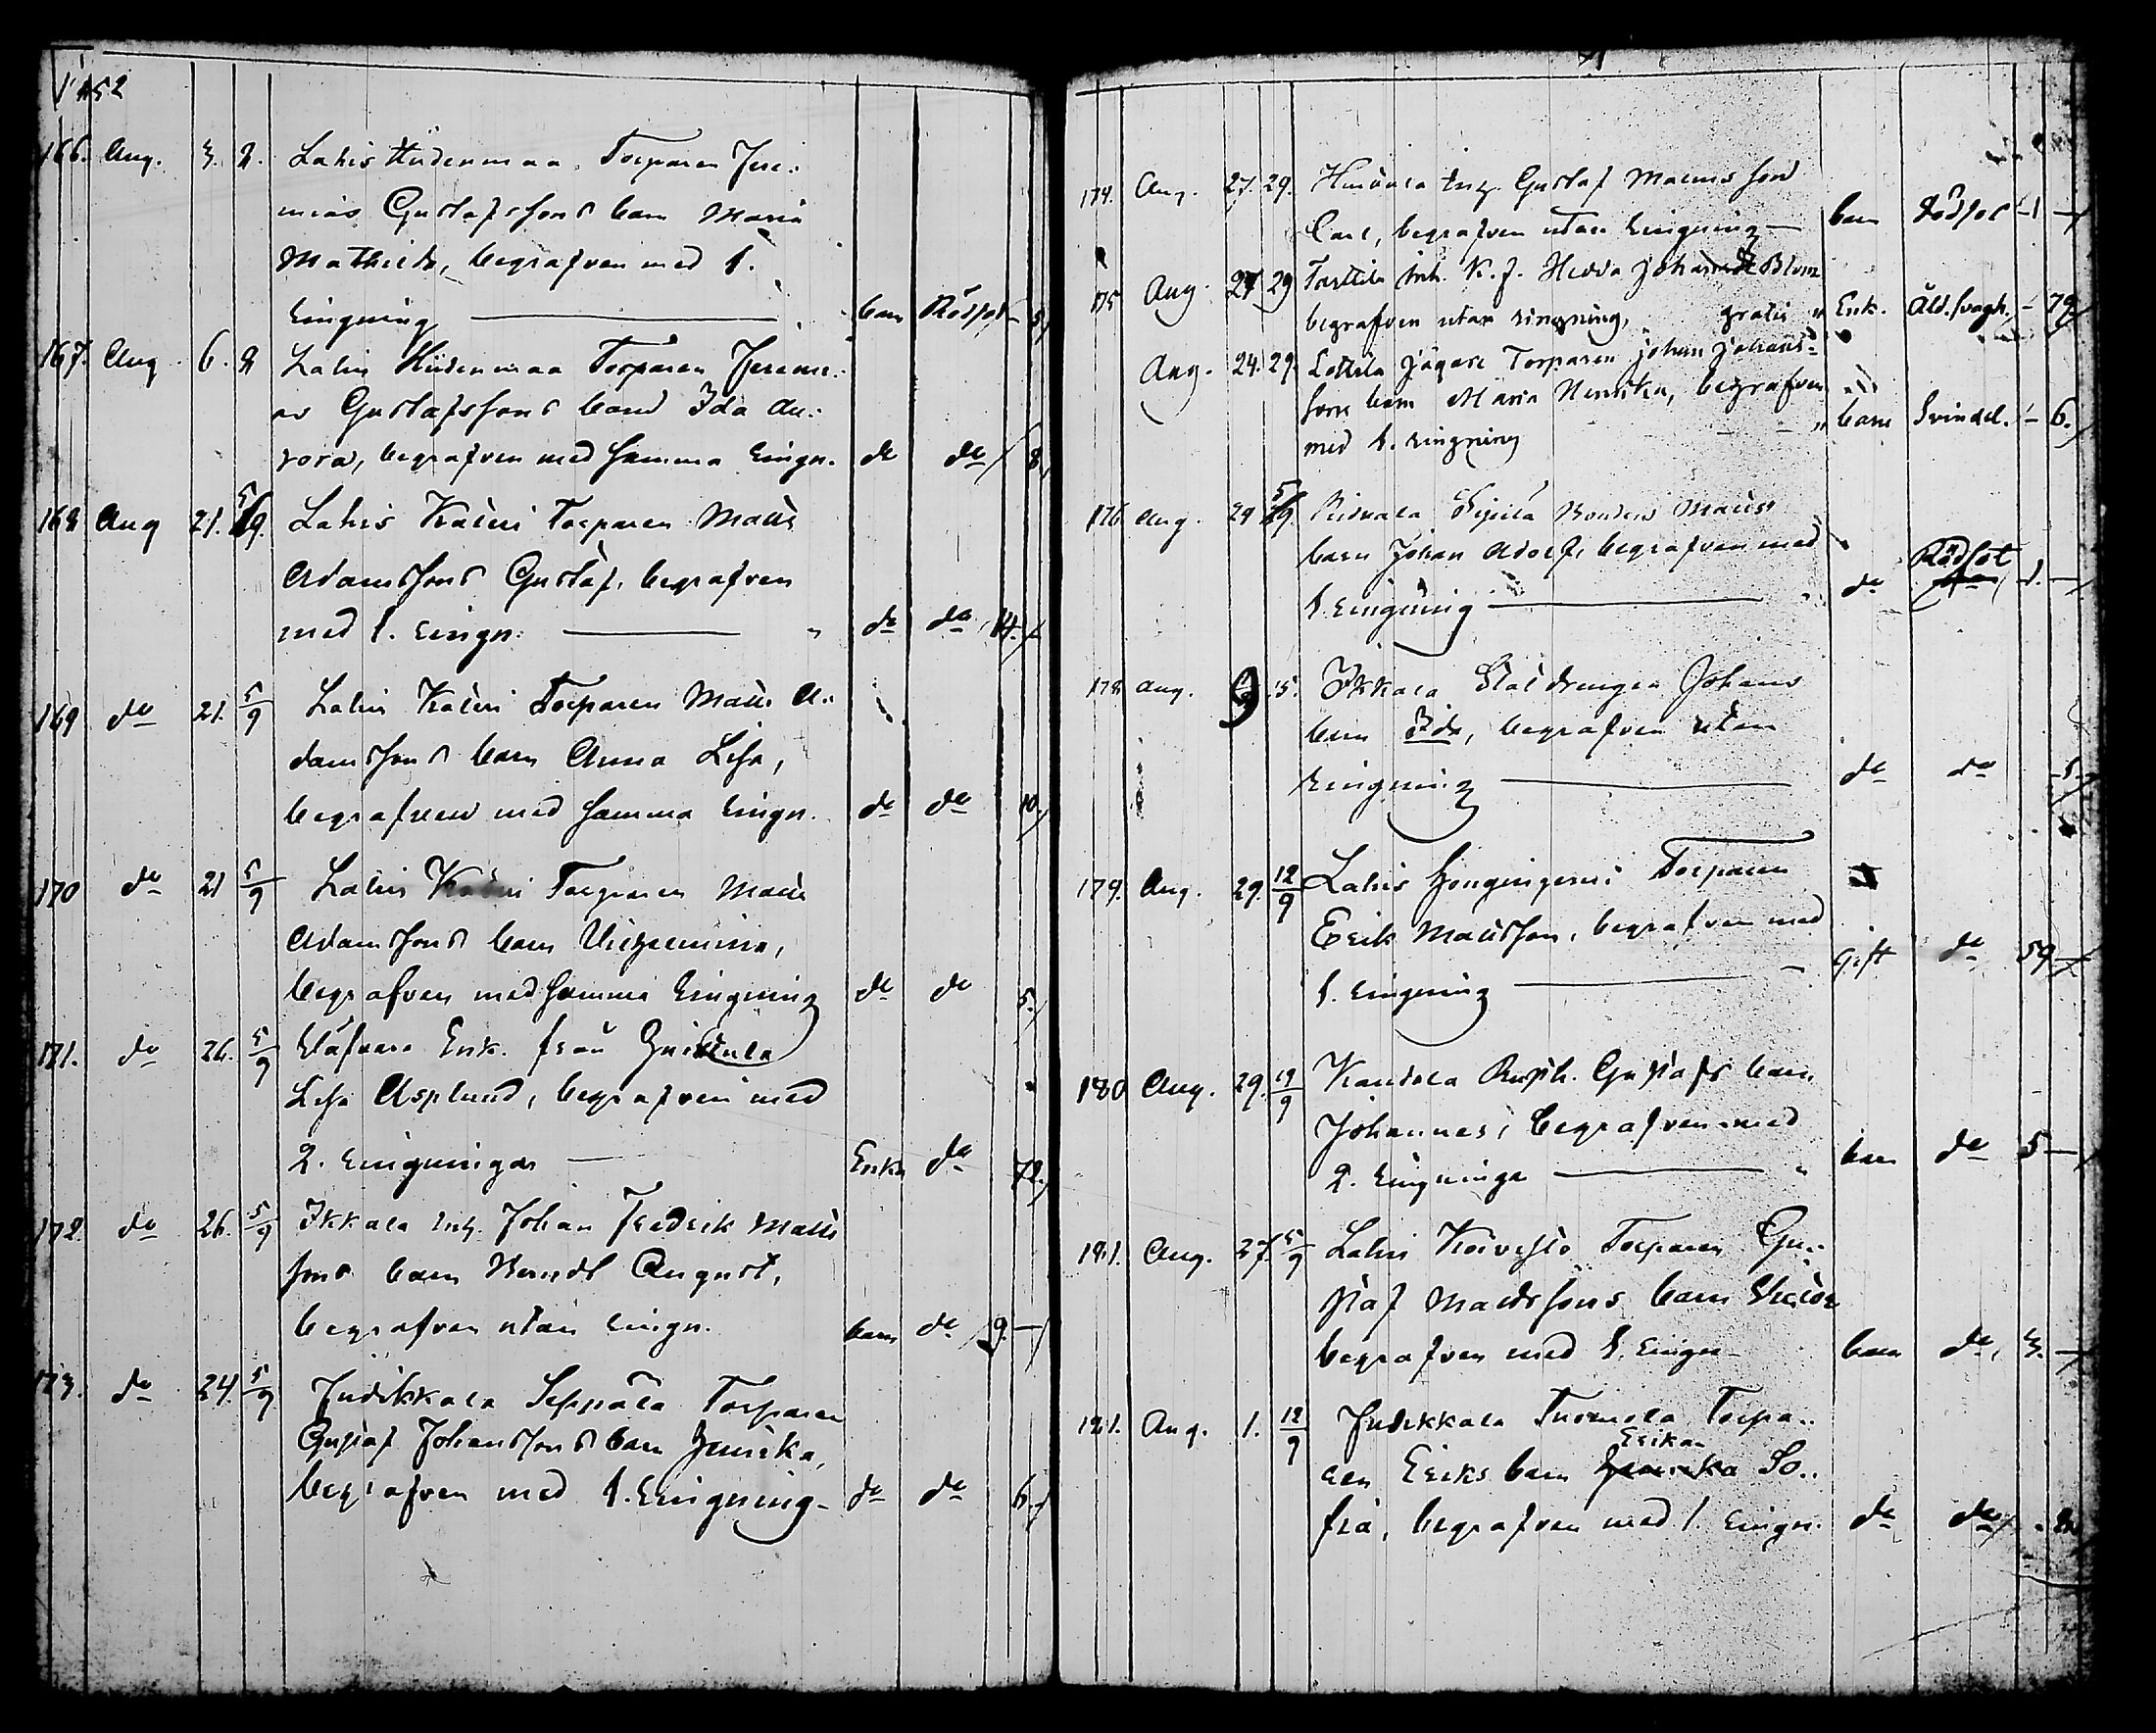 1852
166. Aug. 3. 2. Lahis Hiidenmaa Torparen Jere:
mias Gustafssons barn Maria
Mathilda, begrafven med 1.
Ringning — barn Rödsot 5/
167. Aug. 6. 2 Lahis Hiidenmaa Torparen Jeremi:
as Gustafssons barn Ida Au:
rora, begrafven med samma Ringn. do do 8/
168 Aug 21. 5/9. Lahis Kaieri Torparen Matts
Adamssons Gustaf, begrafven
med 1. Ringn: — " do do 14./.
169 do 21. 5/9 Lahis Kaieri Torparen Matts A:
damssons barn Anna Lisa,
begrafven med samma Ringn. do do 10/
170 do 21 5/9 Lahis Torparen Matts
Adamssons barn Vilhelmina,
begrafven med samma Ringning do do 5./
171. do 26. 5/9 Enk. från
Lisa Asplund, begrafven med
2. Ringningar — Enka do 72./
172 do 26. 5/9 Ikkala Inh. Johan Fredrik Matts
sons barn Berndt August,
begrafven utan Ringn. barn do 9. —/
173. do 24. 5/9 Judikkala Seppälä Torparen
Gustaf Johanssons barn Henrika,
begrafven med 1. Ringning — do do 6./
174. Aug. 27. 29. Inh. Gustaf Matts son
Carl, begrafven utan Ringning — barn Rödsot 1 —/
175 Aug. 27 29 Tarttila Inh. K. J. Hedda Johansdr Blom
begrafven utan ringning, gratis " Enk. Åld.svagh. — 79/
Aug. 24. 29. Lottila Jägare Torparen Johan Johans-
sons barn Maria Henrika, begrafven
med 1. Ringning — — " barn Svindel. — 6./
176 Aug. 29 5/9. Ridvala Bonden Matts
barn Johan Adolf, begrafven med
1. Ringning — do Rödsot 1. —/
178 Aug. 9 5. Ikkala Staldrengen Johans
barn Ida, begrafven utan
Ringning — do do 5/
179. Aug. 29. 12/9 Lahis Torparen
Erik Mattsson, begrafven med
1. Ringning — gift do 59 /
180 Aug. 29. 19/9 Kandola Gustafs barn
Johannes, begrafven med
2. Ringninga — " barn do 5 —/
181. Aug. 27. 5/9 Lahis Koivisto Torparen Gu:
staf Mattssons barn Victor
begrafven med 1. Ringn — barn do, 3. —/
181. Aug. 1. 12/9 Judikkala Tuomola Torpa:
Erika
ren Eriks barn Henrika So:
fia, begrafven med 1. Ringn. do do/